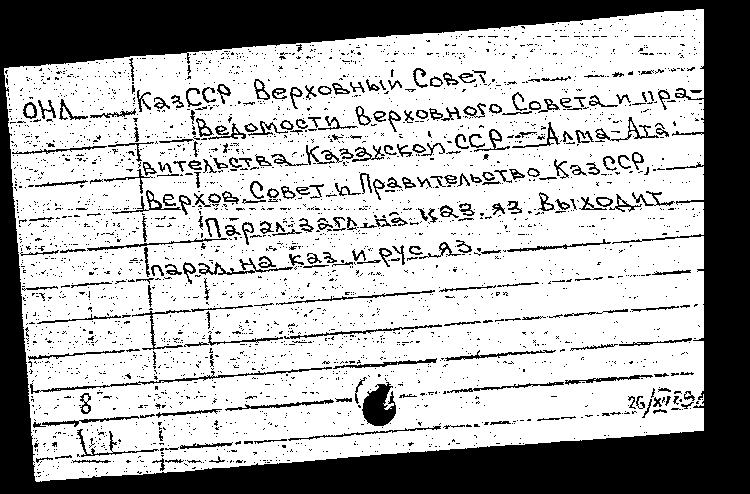 ОНЛ КазССР. Верховный Совет.
Ведомости Верховного Совета и пра-
вительства Казахской ССР. – Алма-Ата:
Верхов. Совет и Правительство КазССР,
Парал. загл. на каз. яз. Выходит
парал. на каз. и рус. яз.
8